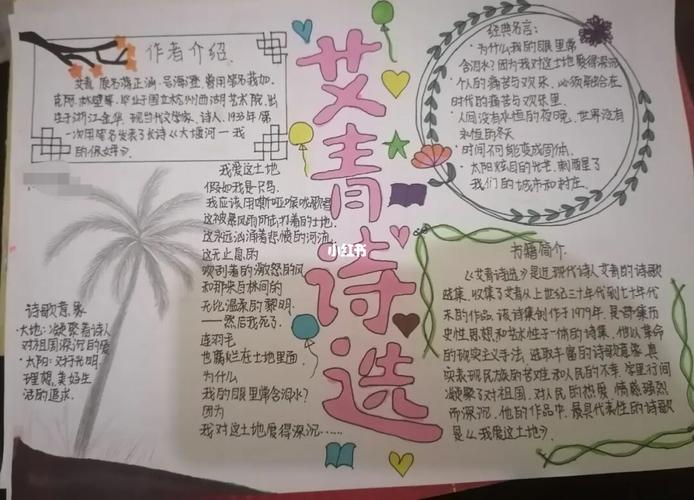 作者介绍
艾青 原名蒋正涵 号海澄 曾用笔名莪加、
克阿、林壁等,毕业于国立杭州西湖艺术院,出
生于浙江金华,现当代文学家、诗人,1933年第
一次用笔名发表了长诗《大堰河——我
的保姆》。
艾青诗选
经典名言:
·为什么我的眼里常
含泪水?因为我对这土地爱得深沉
·个人的痛苦与欢乐,必须融合在
时代的痛苦与欢乐里.
·人间没有永恒的夜晚,世界没有
永恒的冬天
·时间不可能变成固体.
·太阳炫目的光芒,刺醒了
我们的城市和村庄.
我爱这土地
假如我是一只鸟
我应该用嘶哑喉咙歌唱
这被暴风雨所击打着的土地.
这永远汹涌着悲愤的河流
这无止息的
吹刮着的激怒的风
和那来自林间的
无比温柔的黎明
——然后我死了
连羽毛
也腐烂在土地里面
为什么
我的眼里常含泪水?
因为
我对这土地爱得深沉……
诗歌意象
·大地:凝聚着诗人
对祖国深沉的爱
·太阳:对光明,
理想,美好生
活的追求.
书籍简介
《艾青诗选》是近现代诗人艾青的诗歌
选集,收集了艾青从上世纪三十年代到七十年代
末的作品,该诗集创作于1979年,是一部集历
史性,思想和艺术性于一体的诗集,他以革命
的现实主义手法,选取丰富的诗歌意象,真
实表现民族的苦难和人民的不幸,字里行间
凝聚了对祖国,对人民的热爱,情感强烈
而深沉,他的作品中,最具代表性的诗歌
是《我爱这土地》.
小红书